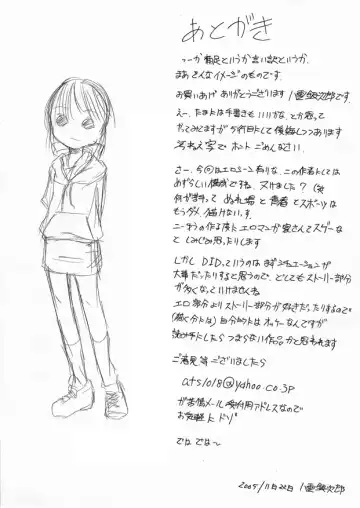 あとがき
つーか補足というか言い訳というか、
まあそんなイメージのものです。
お買いあげありがとうございます 八雲銀次郎です
えー、たまには手書きもいいかな、とか思って
やってみてますが5行目にして後悔しつつあります
汚ねえ字でホント ごめんなさい。
さー、今回はエロシーン有りな、この作者にしては
めずらしい構成ですね。 ヌけました？
何が言って ぬれ場と青春とスポーツは
もうダメ 描けないっす。
エロマンガ家さんてスゲーな
としみじみ思ったりします
しかし DID、っていうのは まずシチュエーションが
大事だったりすると思うので、どしてもストーリー部分
が多くなっていけませんね
エロ部分よりストーリー部分が好きだったりするので
(描く分には) 自分的には オッケーなんですが
読み手にしたら つまらない作品かと思われます
ご意見等ございましたら
ats1018@yahoo.co.jp
が苦情メール受付用アドレスなので
お気軽にドゾ
では では〜
2005/11月22日 八雲銀次郎